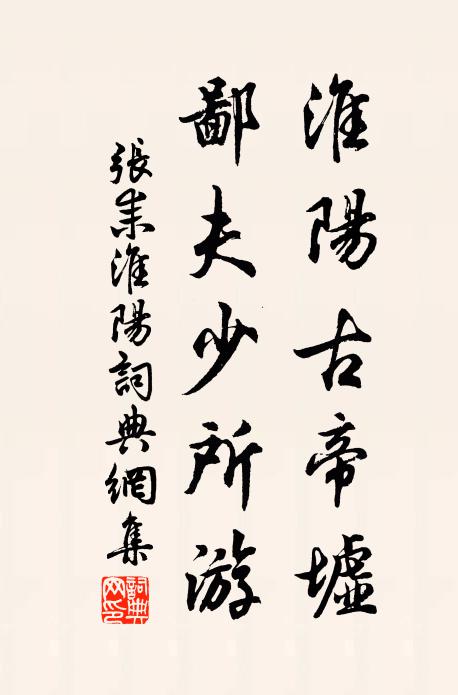 淮陽古帝墟
鄙夫少所游
張耒淮陽詞典網集
詞典網印